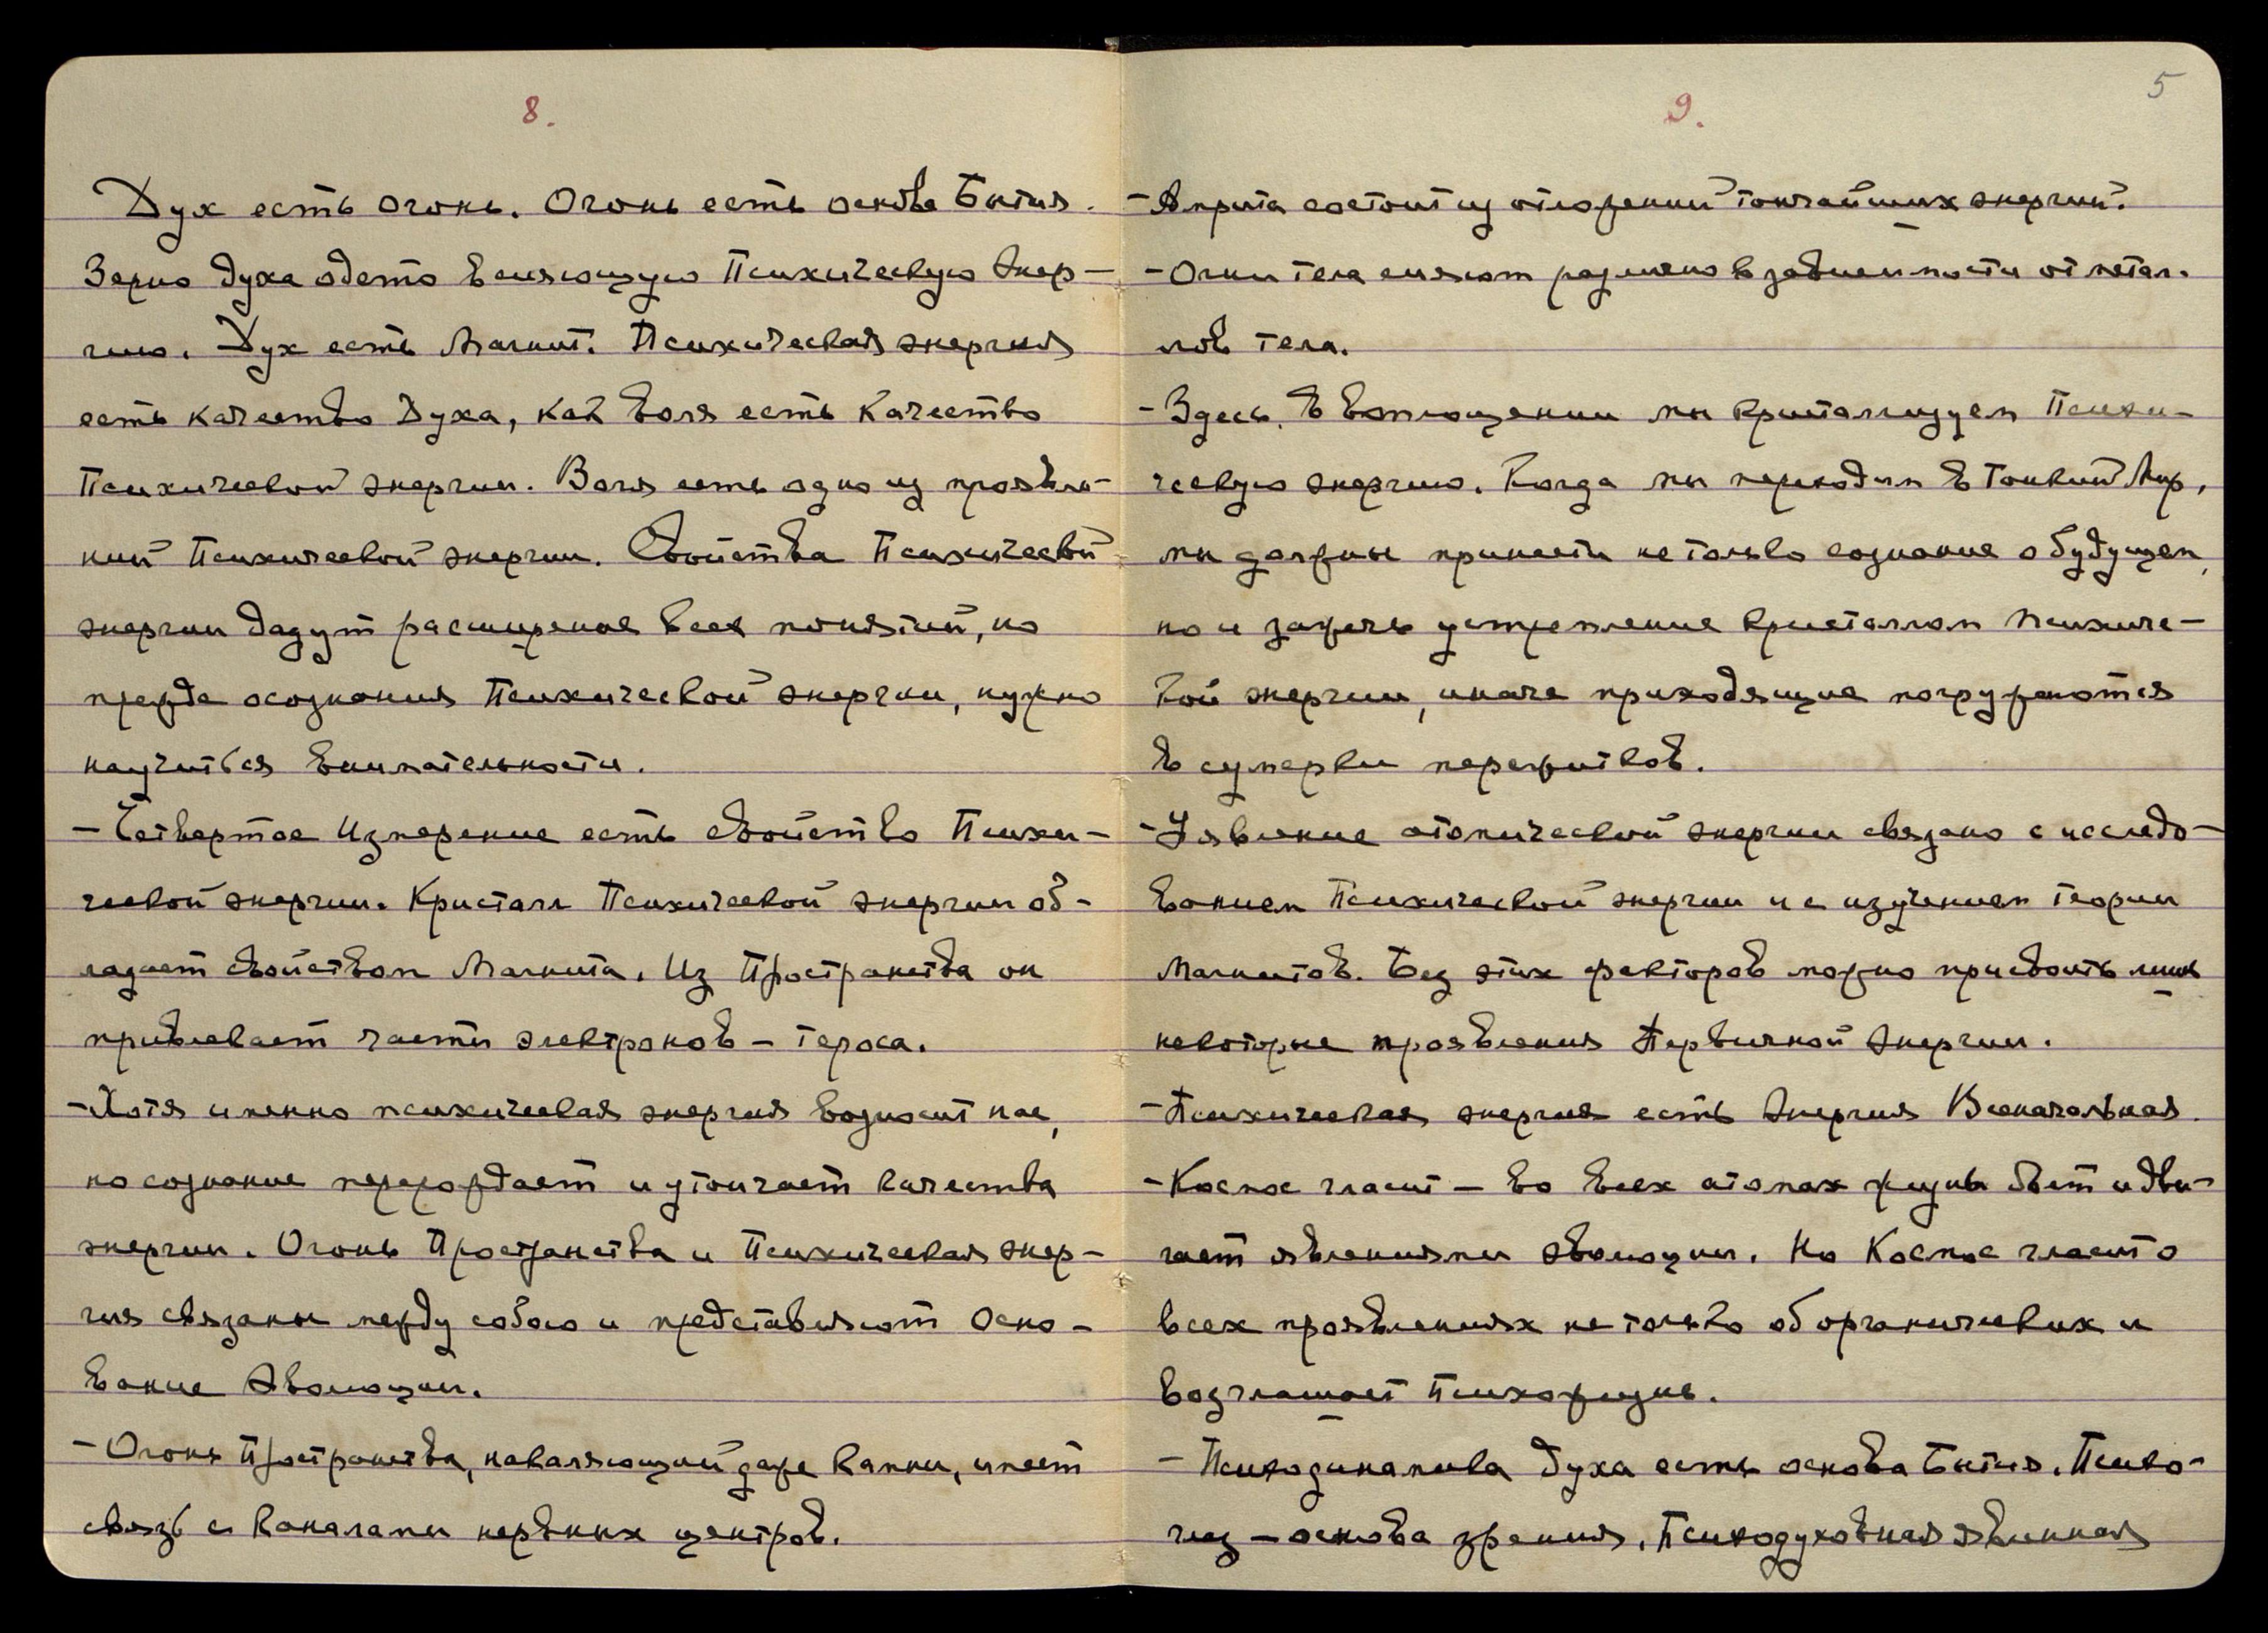 8.
Дух есть огонь. Огонь есть основа Бытия.
Зерно духа одето в сияющую Психическую Энер-
гию. Дух есть Магнит. Психическая энергия
есть качество Духа, как воля есть качество
Психической энергии. Воля есть одно из проявле-
ний Психической энергии. Свойства Психической
энергии дадут расширение всех понятий, но
прежде осознания Психической энергии, нужно
научиться внимательности.
- Четвертое Измерение есть свойство Психи-
ческой энергии. Кристалл Психической энергии об-
ладает свойством Магнита. Из Пространства он
привлекает части электронов - тероса.
- Хотя именно психическая энергия возносит нас,
но сознание перерождает и утончает качества
энергии. Огонь Пространства и Психическая энер-
гия связаны между собою и представляют осно-
вание Эволюции.
- Огонь Пространства, накаляющий даже камни, имеет
связь с каналами нервных центров.
5
9.
- Амрита состоит из отложений тончайших энергий.
- Огни тела сияют различно в зависимости от метал-
лов тела.
- Здесь, в воплощении мы кристаллизуем Психи-
ческую энергию. Когда мы переходим в Тонкий Мир,
мы должны принести не только сознание о будущем,
но и зажечь устремление кристаллом психиче-
кой энергии, иначе приходящие погружаются
в сумерки пережитков.
- Уявление атомической энергии связано с исследо-
ванием Психической энергии и с изучением теории
Магнитов. Без этих факторов можно присвоить лишь
некоторые проявления Первичной Энергии.
- Психическая энергия есть Энергия Всеначальная.
- Космос гласит - во всех атомах жизнь бьет и дви-
гает явлениями эволюции. Но Космос гласит о
всех проявлениях не только об органических и
возглашает Психожизнь.
- Психодинамика духа есть основа Бытия. Психо-
глаз - основа зрения. Психодуховная явленная